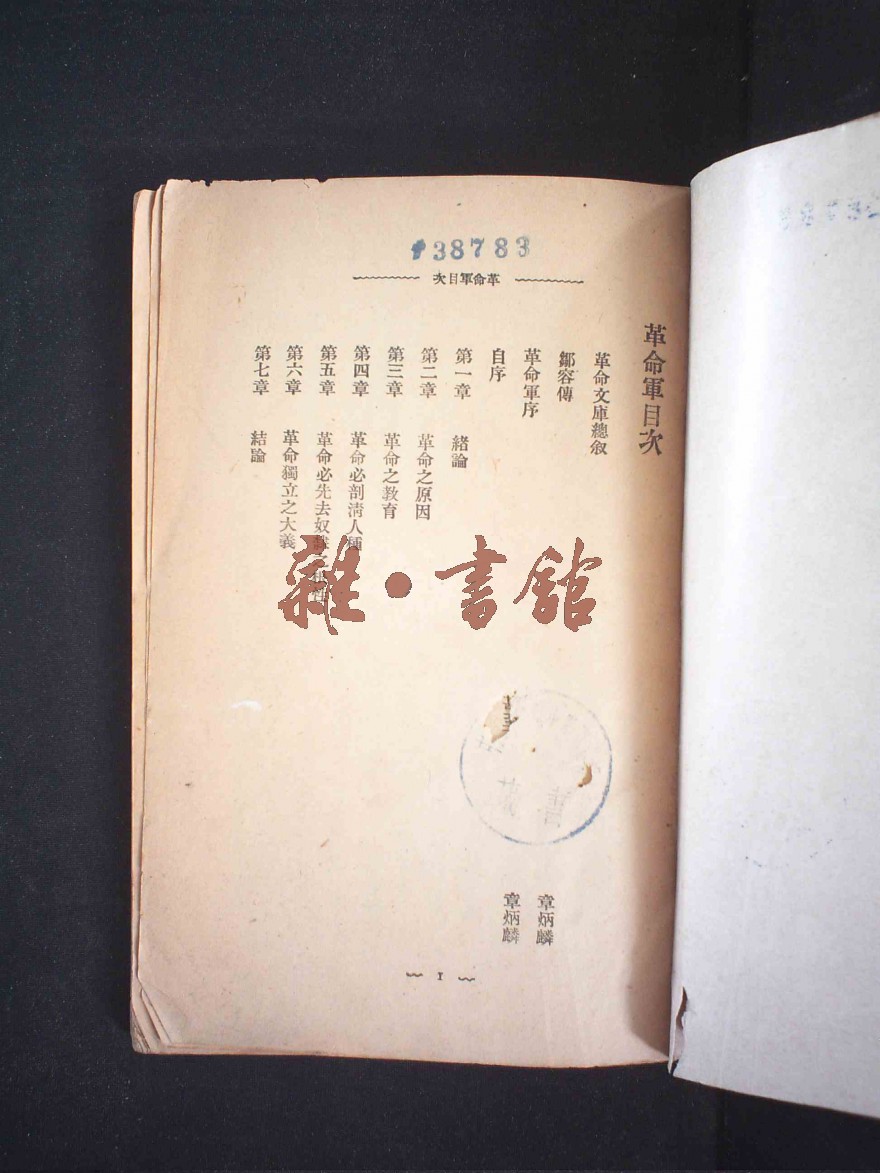 38783
次目軍命革
革命軍目次
革命文庫總叙
鄒容傳 章炳麟
革命軍序 章炳麟
自序
第一章 緒論
第二章 革命之原因
第三章 革命之教育
第四章 革命必剖清人種
第五章 革命必先去奴隸之根性
第六章 革命獨立之大義
第七章 結論
1
雜·書館